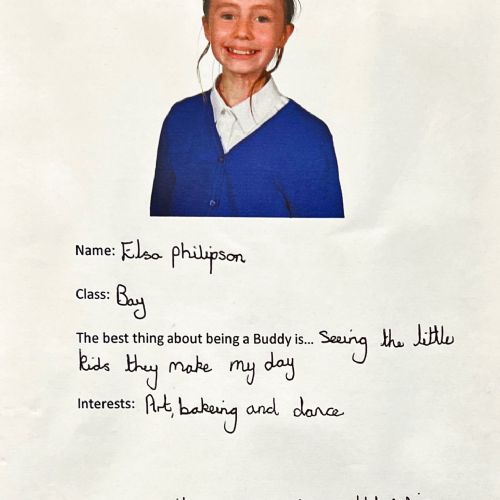 Name: Elsa philipson
Class: Bay
The best thing about being a Buddy is... Seeing the little
kids they make my day
Interests: Art, bakeing and dance